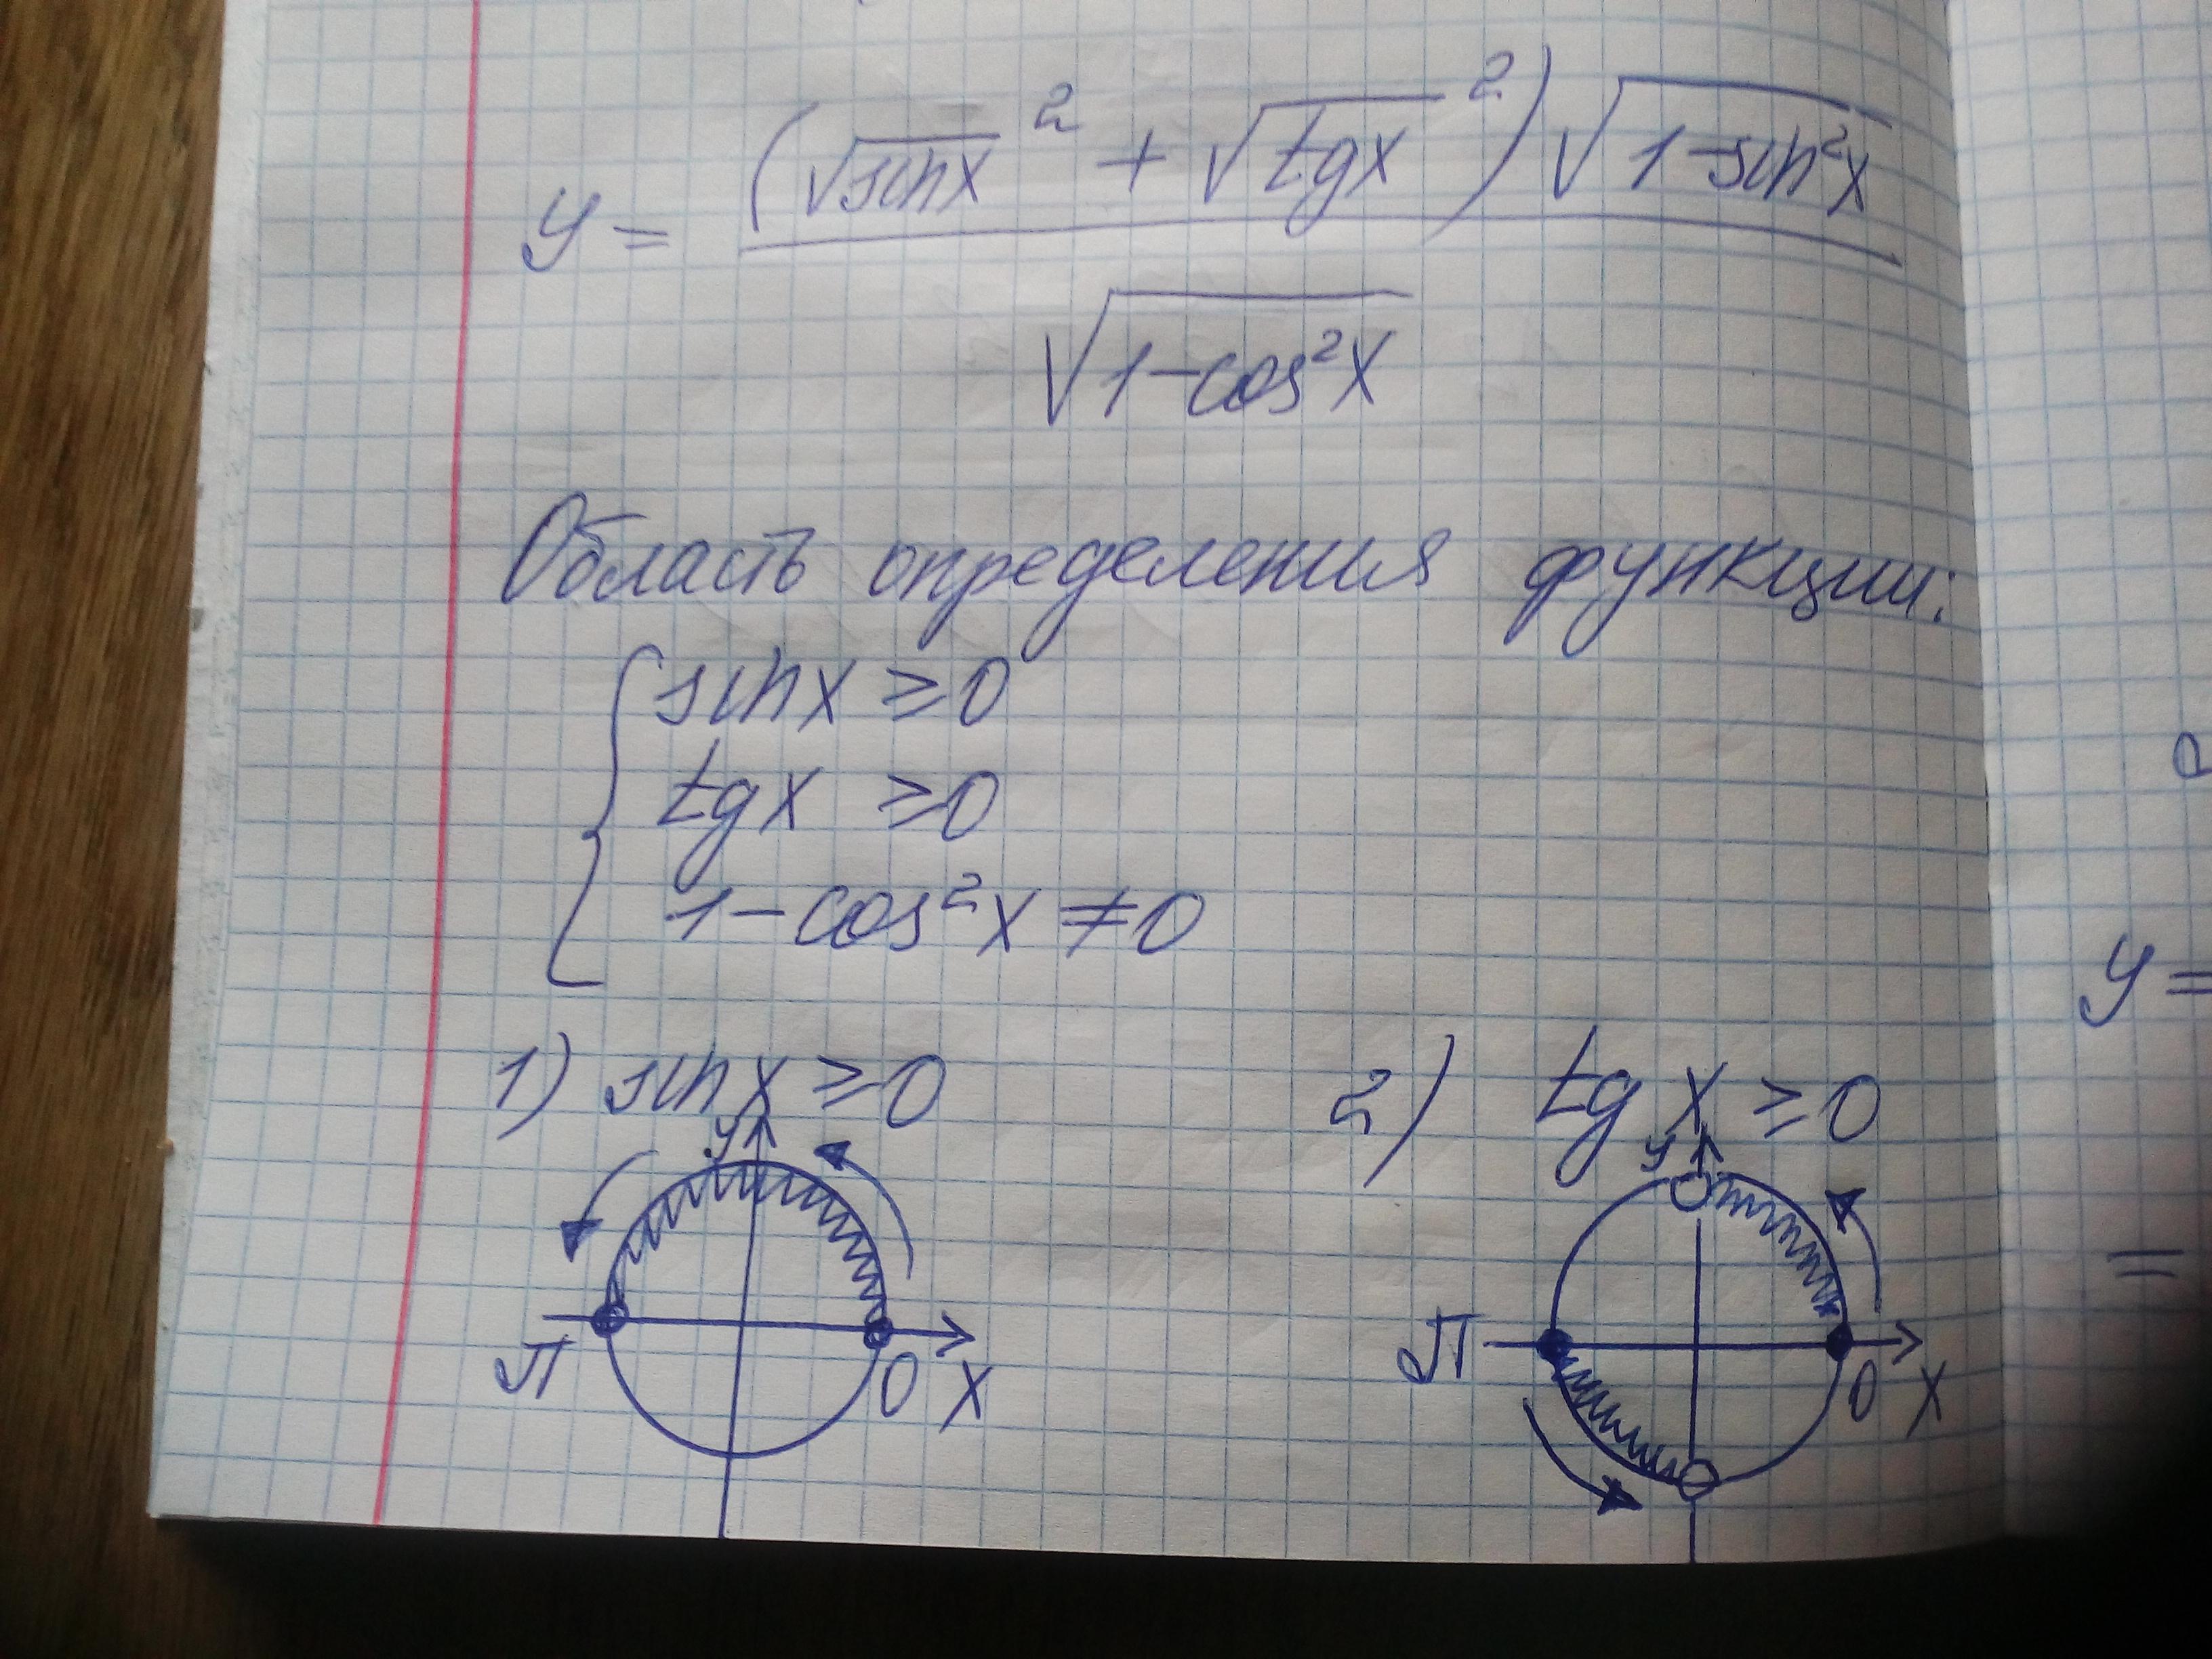 y = (√sinx² + √tgx²)√1-sin²x
√1-cos²x
Область определения функции:
sinx ≥0
tgx ≥0
1-cos²x ≠0
1) sinx ≥0
y
π
0 x
2) tg x ≥0
y
π
0 x
y=
=